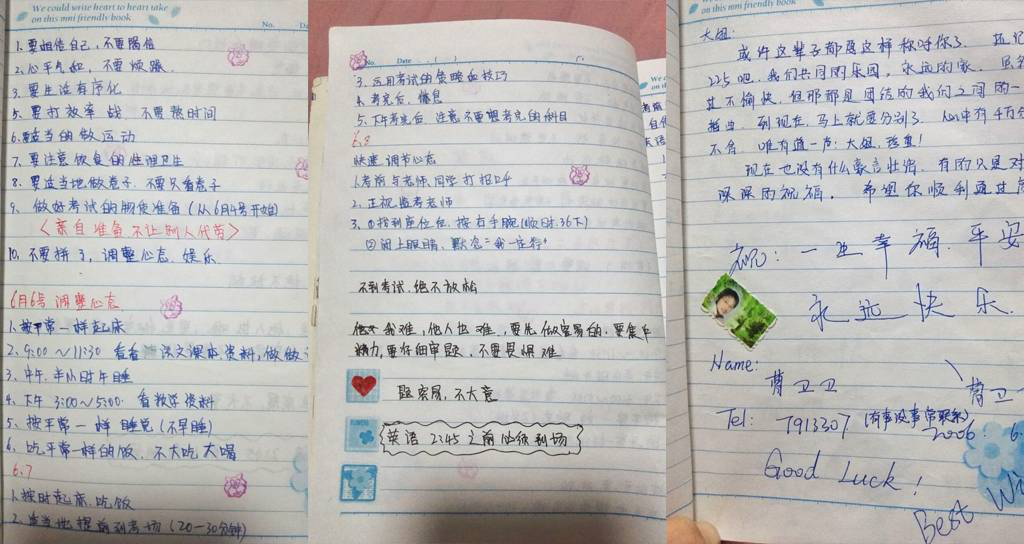 We could write heart to heart take
on this mini friendly book
No.
1. 要相信自己,不要隔信
2. 心平气和,不要烦躁.
3. 要生活有序化
5. 要打效率战,不要熬时间
6. 要适当的做运动
7. 要注意饮食的
卫生
8. 要适当地做卷子,不要只看卷子
9. 做好考试的物质准备(从6月4号开始)
<亲自准备不让别人代劳>
10. 不要拼了,调整心态、娱乐
6月6号 调整心态
1. 按平常一样起床
2. 9:00~11:30 看看语文课本、资料,做做
3. 中午,半小时午睡
4. 下午 3:00~5:00 看数学资料
5. 按平常一样睡觉(不早睡)
6. 吃平常一样的饭,不大吃大喝
6.7
1. 按时起床、吃饭
2. 适当地提前到考场(20-30分钟)
No. Date ( )
3. 运用考试的策略和技巧
4. 考完后,休息
5. 下午考完后,注意不要想考完的科目
6.8
快速调节心态
1. 考前与老师、同学打招呼
2. 正视监考老师
3. ①找到座位后,按右手腕(顺时36下)
②闭上眼睛,默念:"我一定行"
不到考试,绝不放松
我难,他人也难,要先做容易的,要集中
精力,要仔细审题,不要畏惧难
题容易,不大意
英语 2:45 之前必须到场
We could write heart to heart take
on this mini friendly book
大姐:
或许这辈子都是这样称呼你了.
225吧,我们共同的乐园,永远的家.
甚不愉快,但那都是团结的我们之间的一
插曲.到现在,马上就要分别了.心中有千百
不舍,唯有道一声:大姐,珍重!
现在也没有什么豪言壮语,有的只是对
深深的祝福。希望你顺利通过
祝:一生幸福、平安
永远快乐.
Name:
曹卫卫
曹卫
Tel: 7913307 (有事没事常联系)
2006. 6.
Good Luck!
Best Wi